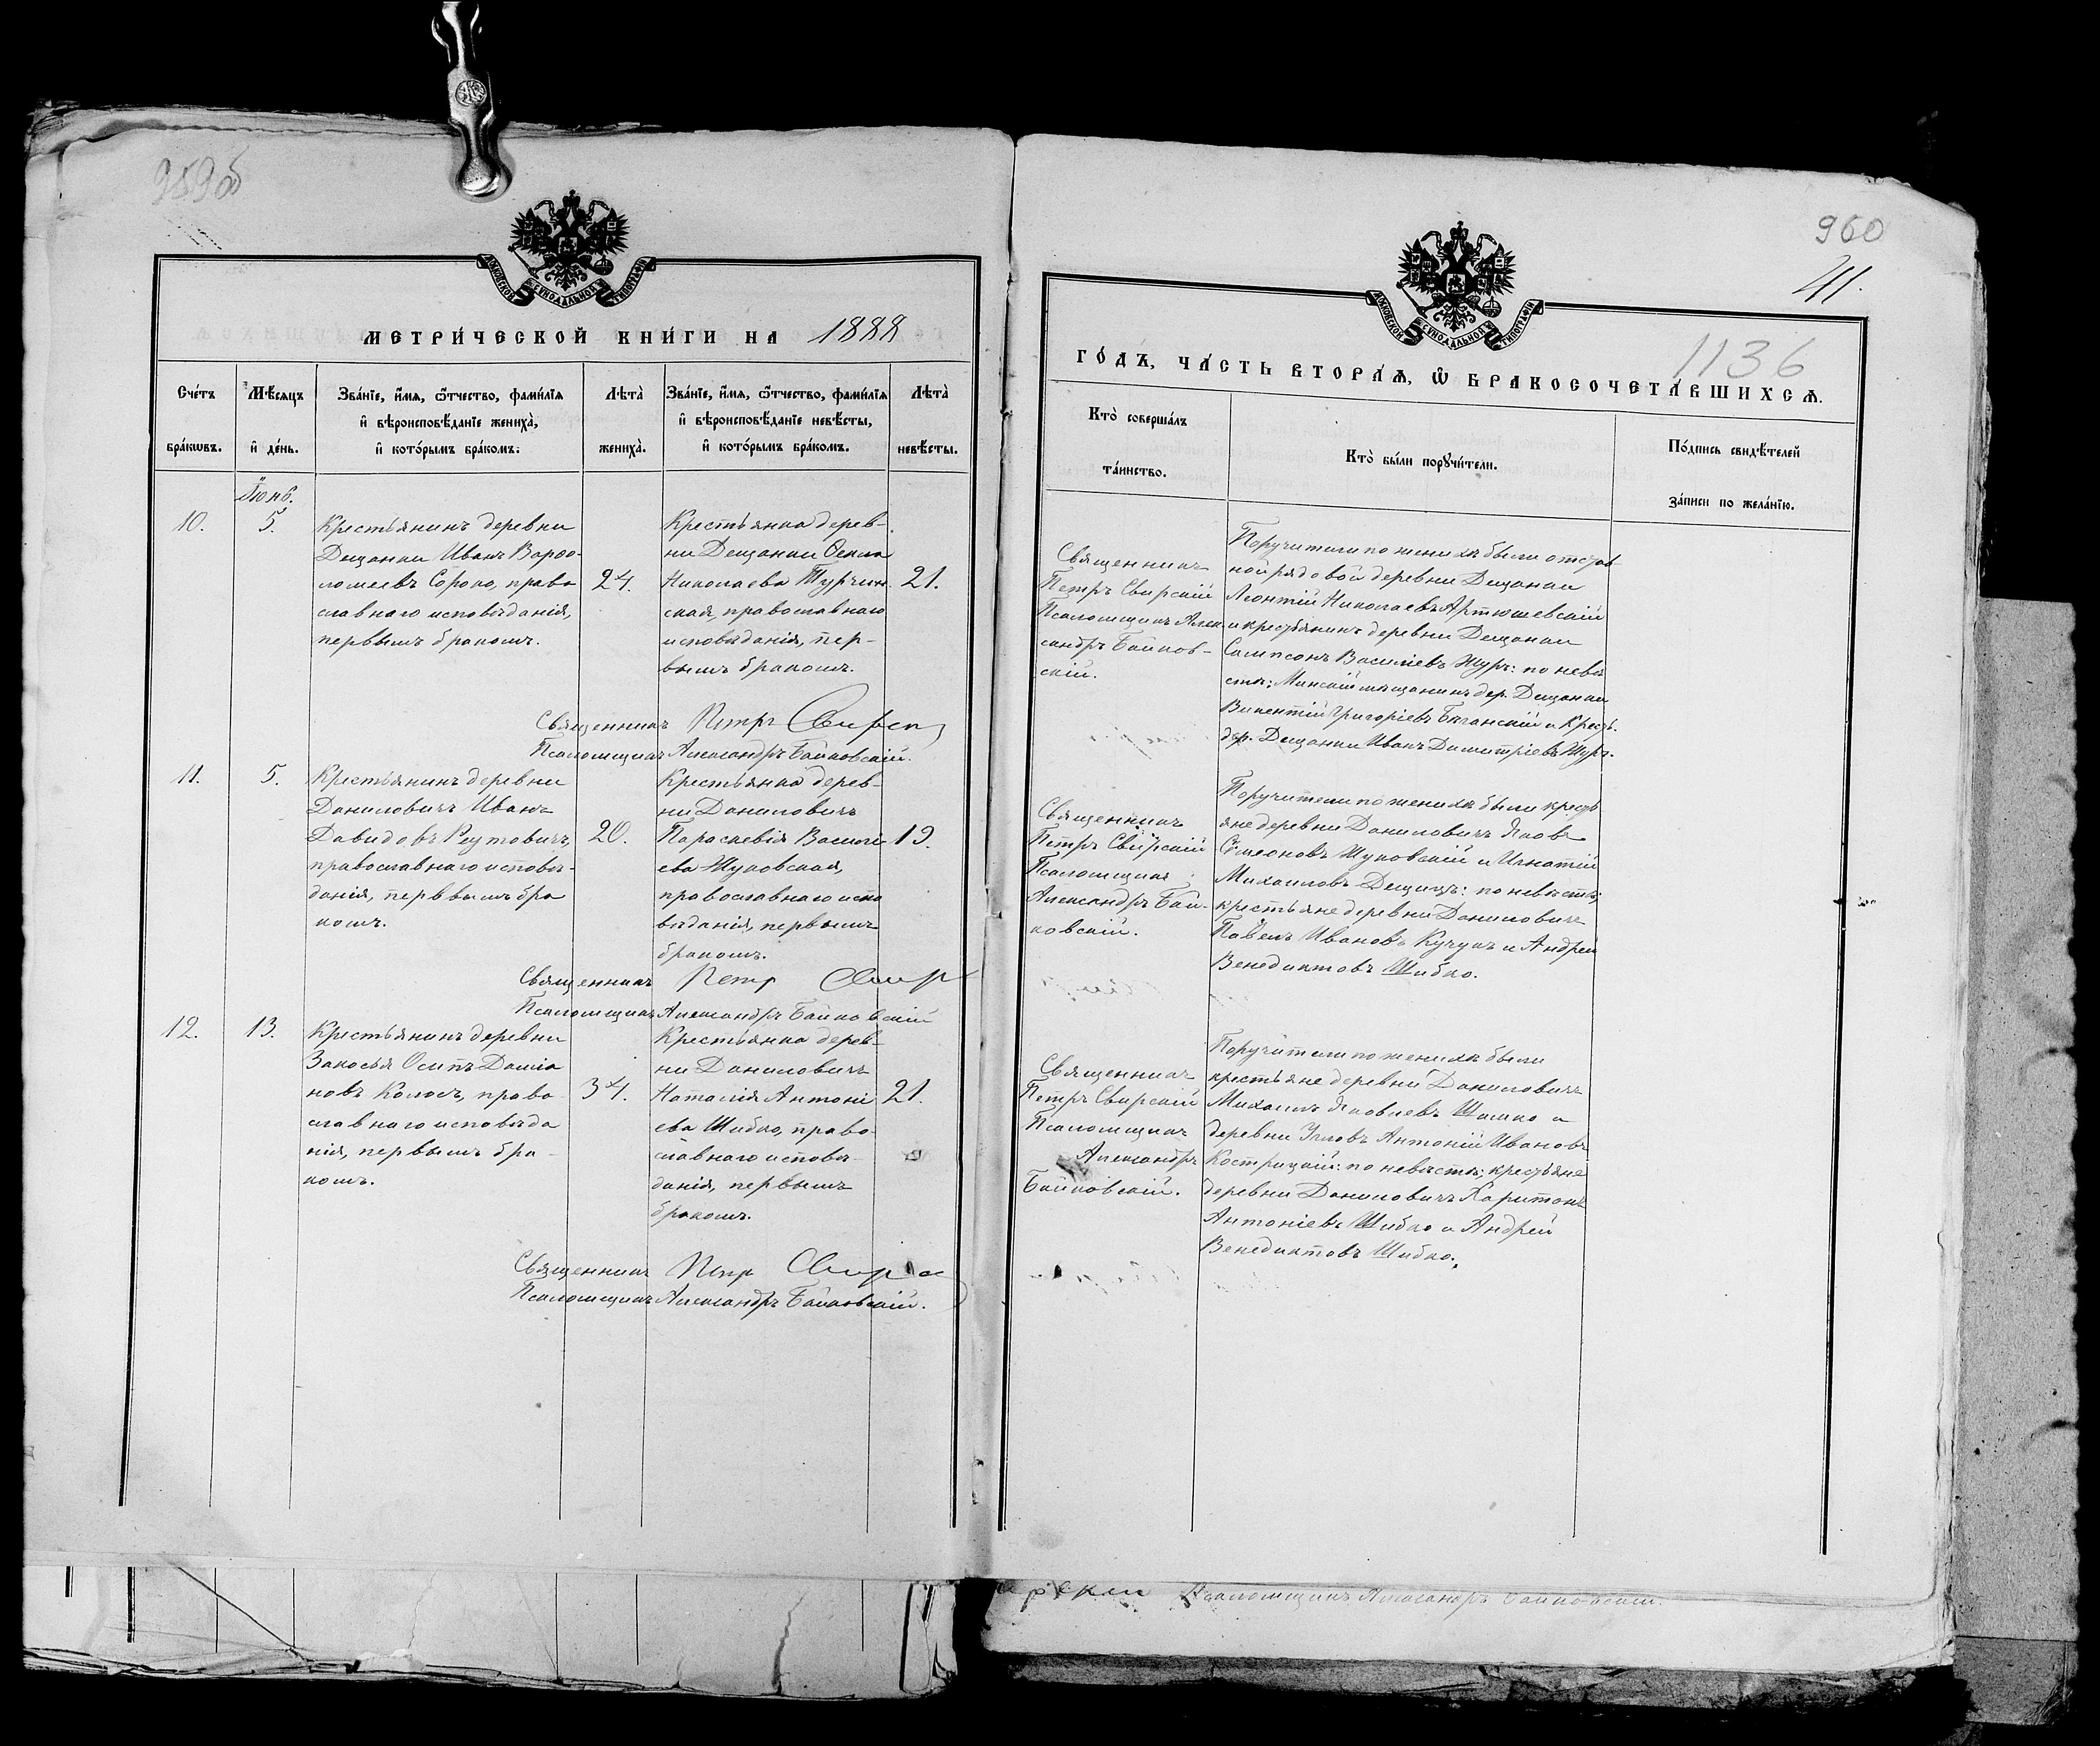 959об
МОСКОВСКОЙ СѴНОДАЛЬНОЙ ТИПОГРАФІИ
МЕТРИ́ЧЕСКОЙ КНИ́ГИ НА 1888
Сче́тъ бра́кωвъ.
Мѣ́сяцъ и҆ де́нь.
Зва́нїе, и҆́мя, ѻ҆́тчество, фами́лїя
и҆ вѣроисповѣ́данїе жениха̀,
и҆ кото́рымъ бра́комъ:
Лѣта̀ жениха̀.
Зва́нїе, и҆́мя, ѻ҆́тчество, фами́лїя
и҆ вѣроисповѣ́данїе невѣ́сты,
и҆ кото́рымъ бра́комъ.
Лѣта̀ невѣ́сты.
Іюнь.
10.
5.
Крестьянинъ деревни
Дещанки Иванъ Варѳо-
ломеевъ Сороко, право
славнаго исповѣданія,
первымъ бракомъ.
24.
Крестьянка дерев-
ни Дещанки Ѳекла
Николаева Турчин
ская, православнаго
исповѣданія, пер-
вымъ бракомъ.
21.
Священникъ Петръ
Псаломщикъ Александръ Байковскій.
11.
5.
Крестьянинъ деревни
Даниловичъ Иванъ
Давидовъ Реутовичъ,
православнаго исповѣ-
данія, первымъ бра
комъ.
20.
Крестьянка дерев-
ни Даниловичъ
Параскевія Василі
ева Жуковская,
православнаго испо
вѣданія, первымъ
бракомъ.
19.
Священникъ Петр
Псаломщикъ Александръ Байковскій
12.
13.
Крестьянинъ деревни
Закосья Осипъ Даміа
новъ Колосъ, право
славнаго исповѣда
нія, первымъ бра-
комъ.
34.
Крестьянка дерев-
ни Даниловичъ
Наталія Антоні
ева Шибко, право-
славнаго исповѣ-
данія, первымъ
бракомъ.
21.
Священникъ Петр
Псаломщикъ Александръ Байковскій.
960
41.
1136
МОСКОВСКОЙ СѴНОДАЛЬНОЙ ТИПОГРАФІИ
ГО́ДЪ, ЧА́СТЬ ВТОРА́Я, Ѽ БРАКОСОЧЕТА́ВШИХСЯ.
Кто̀ соверша́лъ
та́инство.
Кто̀ бы́ли порꙋчи́тели.
По́дпись свидѣ́телей
за́писи по жела́нїю.
Священникъ
Петръ Свирскій
Псаломщикъ Алек-
сандръ Байков-
скій.
Поручители по женихѣ были отстав
ной рядовой деревни Дещанки
Леонтій Николаевъ Артюшевскій
и крестьянинъ деревни Дещанки
Сампсонъ Василіевъ Журъ: по невѣ
стѣ: Минскій мѣщанинъ дер. Дещанки
Викентій Григоріевъ Баганскій и Крест.
дер. Дещанки Иванъ Димитріевъ Журъ.
Священникъ
Петръ Свирскій
Псаломщикъ
Александръ Бай-
ковскій.
Поручители по женихѣ были кресть
яне деревни Даниловичъ Яковъ
Симеоновъ Жуковскій и Игнатій
Михаиловъ Дещицъ: по невѣстѣ;
крестьяне деревни Даниловичъ
Павелъ Ивановъ Кучукъ и Андрей
Венедиктовъ Шибко.
Священникъ
Петръ Свирскій
Псаломщикъ
Александръ
Байковскій.
Поручители по женихѣ были
крестьяне деревни Даниловичъ
Михаилъ Яковлевъ Шашко и
деревни Угловъ Антоній Ивановъ
Кострицкій: по невѣстѣ; крестьяне
деревни Даниловичъ Харитонъ
Антоніевъ Шибко и Андрей
Венедиктовъ Шибко.
Псаломщикъ Александръ Байковскій.